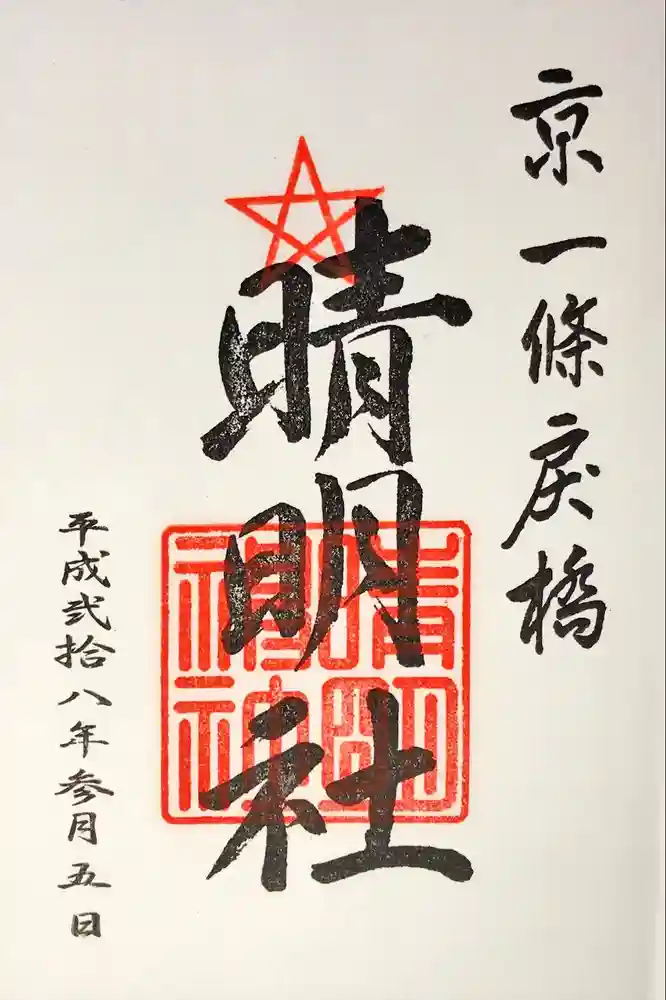 京一條戻橋
晴明社
晴明
神社
平成弐拾八年参月五日